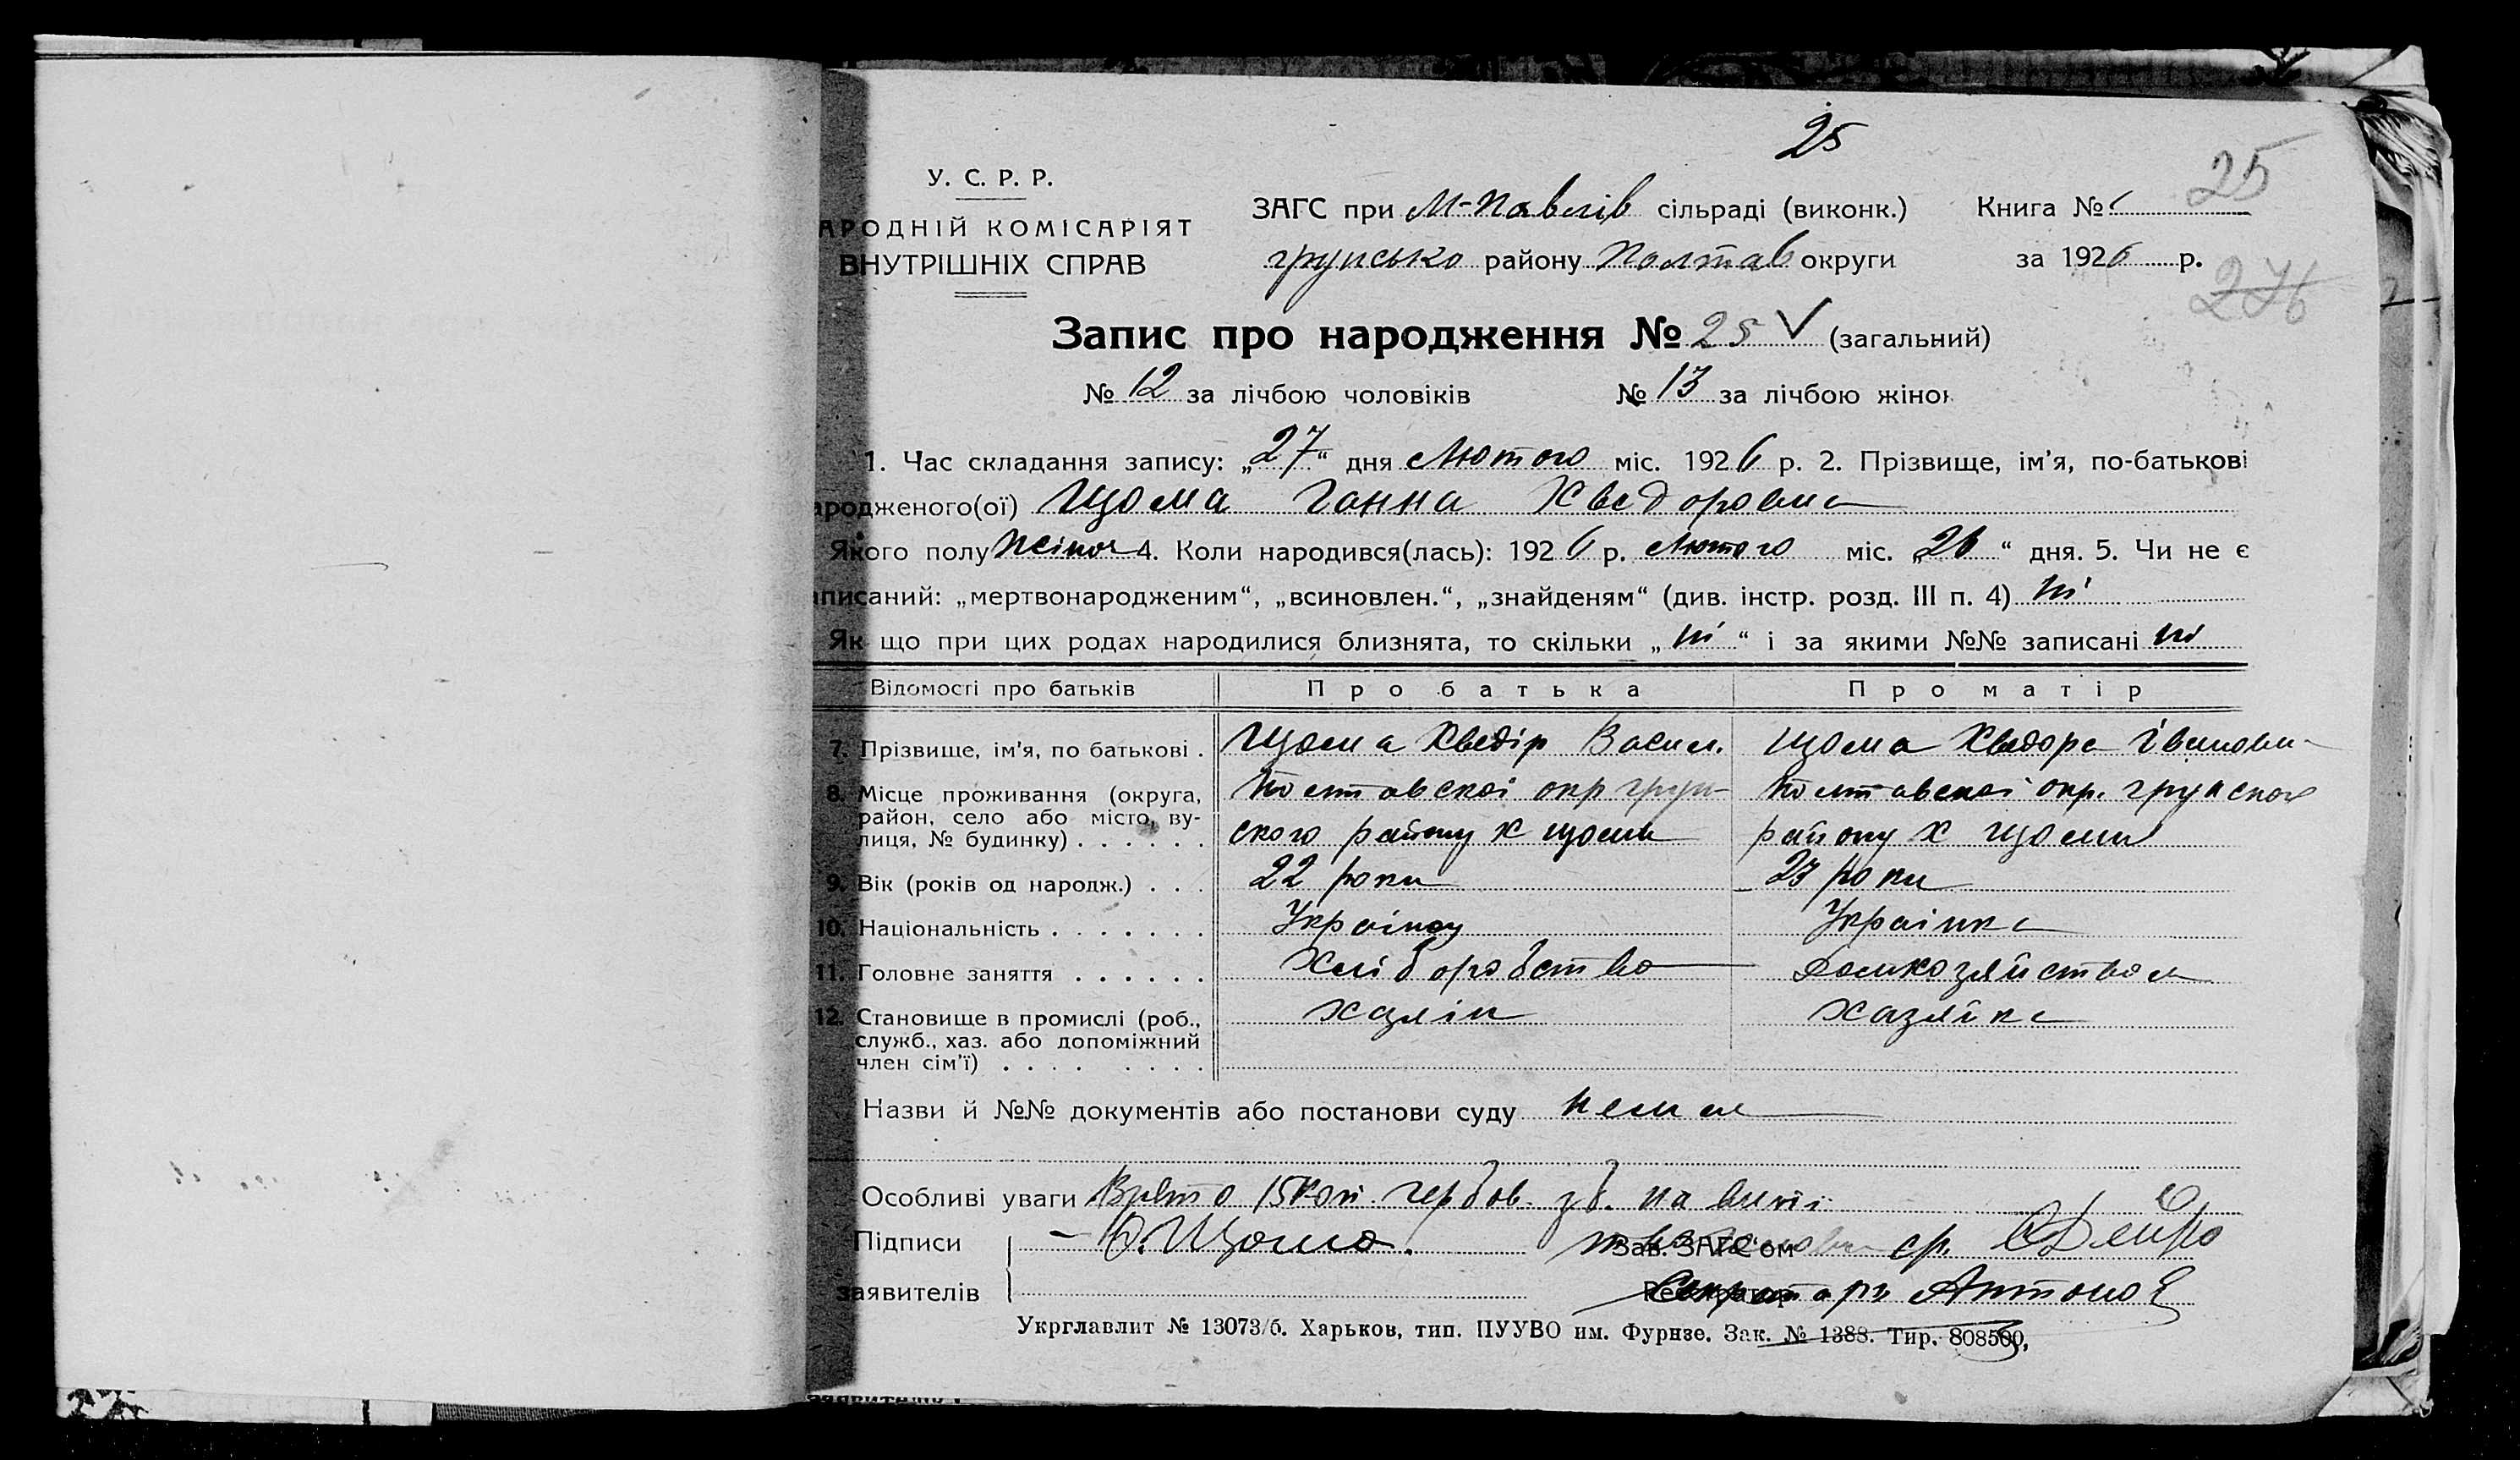 25
У. С. Р. Р.
АРОДНІЙ КОМІСАРІЯТ
ВНУТРІШНІХ СПРАВ
ЗАГС при М-Павлів сільраді (виконк.)
грунсько району Полтав округи
Книга № 25
за 1926 р.
276
Запис про народження № 25 V (загальний)
№ 12 за лічбою чоловіків № 13 за лічбою жіно
1. Час складання запису: „27“ дня Лютого міс. 1926 р. 2. Прізвище, ім’я, по-батькові
ародженого(ої) Щома Ганна Хведоровна
Якого полу жіноч 4. Коли народився(лась): 1926 р. Лютого міс. „26“ дня. 5. Чи не є
аписаний: „мертвонародженим“, „всиновлен.“, „знайденям“ (див. інстр. розд. III п. 4) ні
Як що при цих родах народилися близнята, то скільки „ні“ і за якими №№ записані ні
Відомості про батьків Про батька Про матір
7. Прізвище, ім’я, по батькові . Щома Хведір Васил. Щома Хведора Івановн
8. Місце проживання (округа, район, село або місто, вулиця, № будинку) . . . . . .
Полтавскоі окр грун-
ского району х щоми
Полтавскоі окр. грунског
району х щоми
9. Вік (років од народж.) . . . 22 роки 23 роки
10. Національність . . . . . . . Україноц Українка
11. Головне заняття . . . . . . Хліборобство Домхозяйством
12. Становище в промислі (роб., служб., хаз. або допоміжний член сім’ї) . . . . . . . . Хазяін Хазяйка
Назви й №№ документів або постанови суду немае
Особливі уваги Взято 15 коп. гербов. зб.
Підписи заявителів
Щома.
Зав. ЗАГС’ом
Секретарь Антонов
Укрглавлит № 13073/б. Харьков, тип. ПУУВО им. Фурнзе. Зак. № 1388. Тир. 808500,